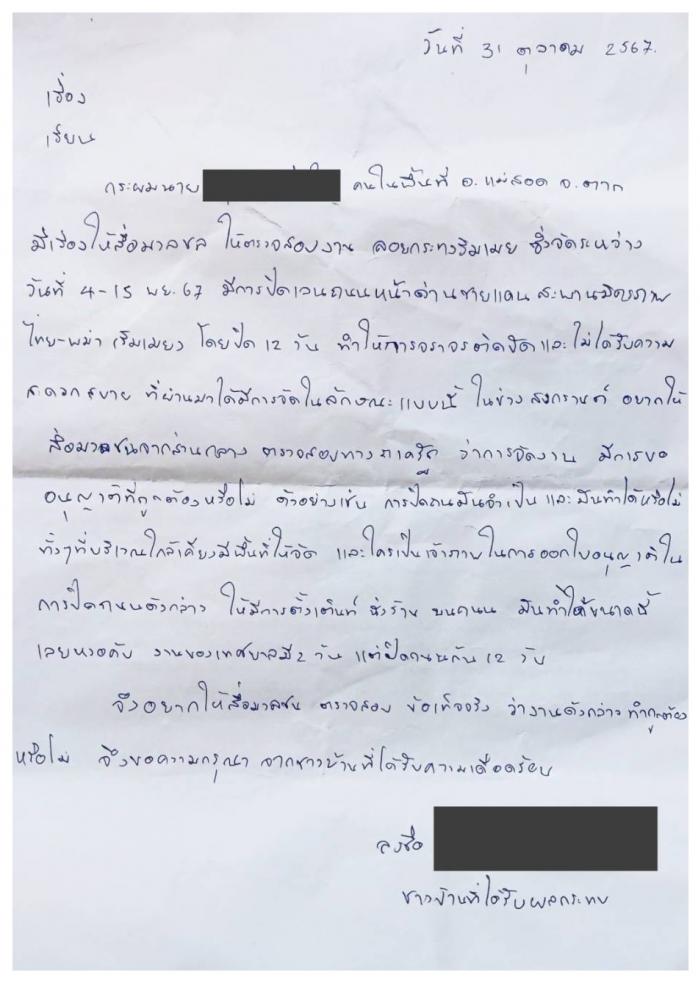 วันที่ 31 ตุลาคม 2567.
เรื่อง
เรียน
กระผมนาย คนในพื้นที่ อ.แม่สอด จ.ตาก
มีเรื่องให้สื่อมวลชล ให้ตรวจสอบงาน ลอยกระทงริมเมย ซึ่งจัดระหว่าง
วันที่ 4-15 พย.67 มีการปิดเลนถนนหน้าด่านชายแดน สะพานมิตรภาพ
ไทย-พม่า (ริมเมย) โดยปิด 12 วัน ทำให้การจราจรติดขัดและไม่ได้รับความ
สะดวกสบาย ที่ผ่านมาได้มีการจัดในลักษณะแบบนี้ ในช่วงสงกรานต์ อยากให้
สื่อมวลชนจากส่วนกลาง ตรวจสอบทางภาครัฐ ว่าการจัดงาน มีการขอ
อนุญาติที่ถูกต้องหรือไม่ ตัวอย่างเช่น การปิดถนนมันจำเป็น และมันทำได้หรือไม่
ทั้งๆที่บริเวณใกล้เคียงมีพื้นที่ให้จัด และใครเป็นเจ้าภาพในการออกใบอนุญาติใน
การปิดถนนดังกล่าว ให้มีการตั้งเต็นท์ ตั้งร้าน บนถนน มันทำได้ขนาดนี้
เลยหรอคับ งานของเทศบาลมี 2 วัน แต่ปิดถนนกัน 12 วัน
จึงอยากให้สื่อมวลชน ตรวจสอบ ข้อเท็จจริง ว่างานดังกล่าว ทำถูกต้อง
หรือไม่ จึงขอความกรุณา จากชาวบ้านที่ได้รับความเดือดร้อน
ลงชื่อ
ชาวบ้านที่ได้รับผลกระทบ